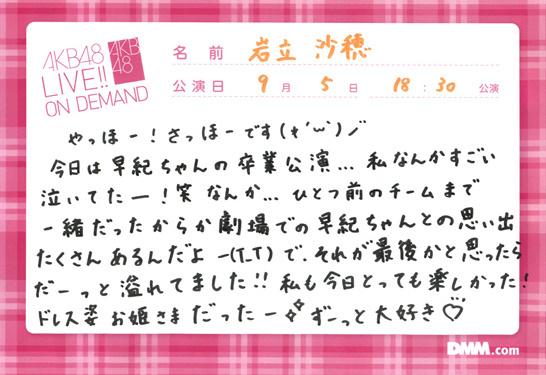 AKB48
LIVE!!
ON DEMAND
AKB
48
名前 岩立 沙穂
公演日 9月 5日 18:30 公演
やっほー！さっほーです(*'ω')ノ
今日は早紀ちゃんの卒業公演... 私なんかすごい
泣いてたー！笑 なんか... ひとつ前のチームまで
一緒だったからか劇場での早紀ちゃんとの思い出
たくさんあるんだよー(T_T) で、それが最後かと思ったら
だーっと溢れてました!! 私も今日とっても楽しかった！
ドレス姿お姫さまだったー ずーっと大好き♡
DMM.com